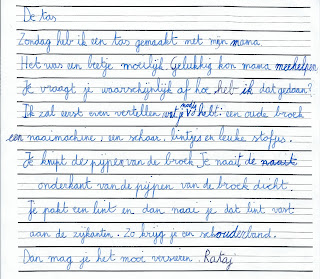 De tas
Zondag heb ik een tas gemaakt met mijn mama.
Het was een beetje moeilijk. Gelukkig kon mama meehelpen.
Je vraagt je waarschijnlijk af hoe heb ik dat gedaan?
Ik zal eerst even vertellen wat je nodig hebt: een oude broek
een naaimachine, een schaar, lintjes en leuke stofjes.
Je knipt de pijpen van de broek. Je naait de naait
onderkant van de pijpen van de broek dicht.
Je pakt een lint en dan naai je dat lint vast
aan de zijkanten. Zo krijg je een schouderband.
Dan mag je het mooi versieren. Rataj